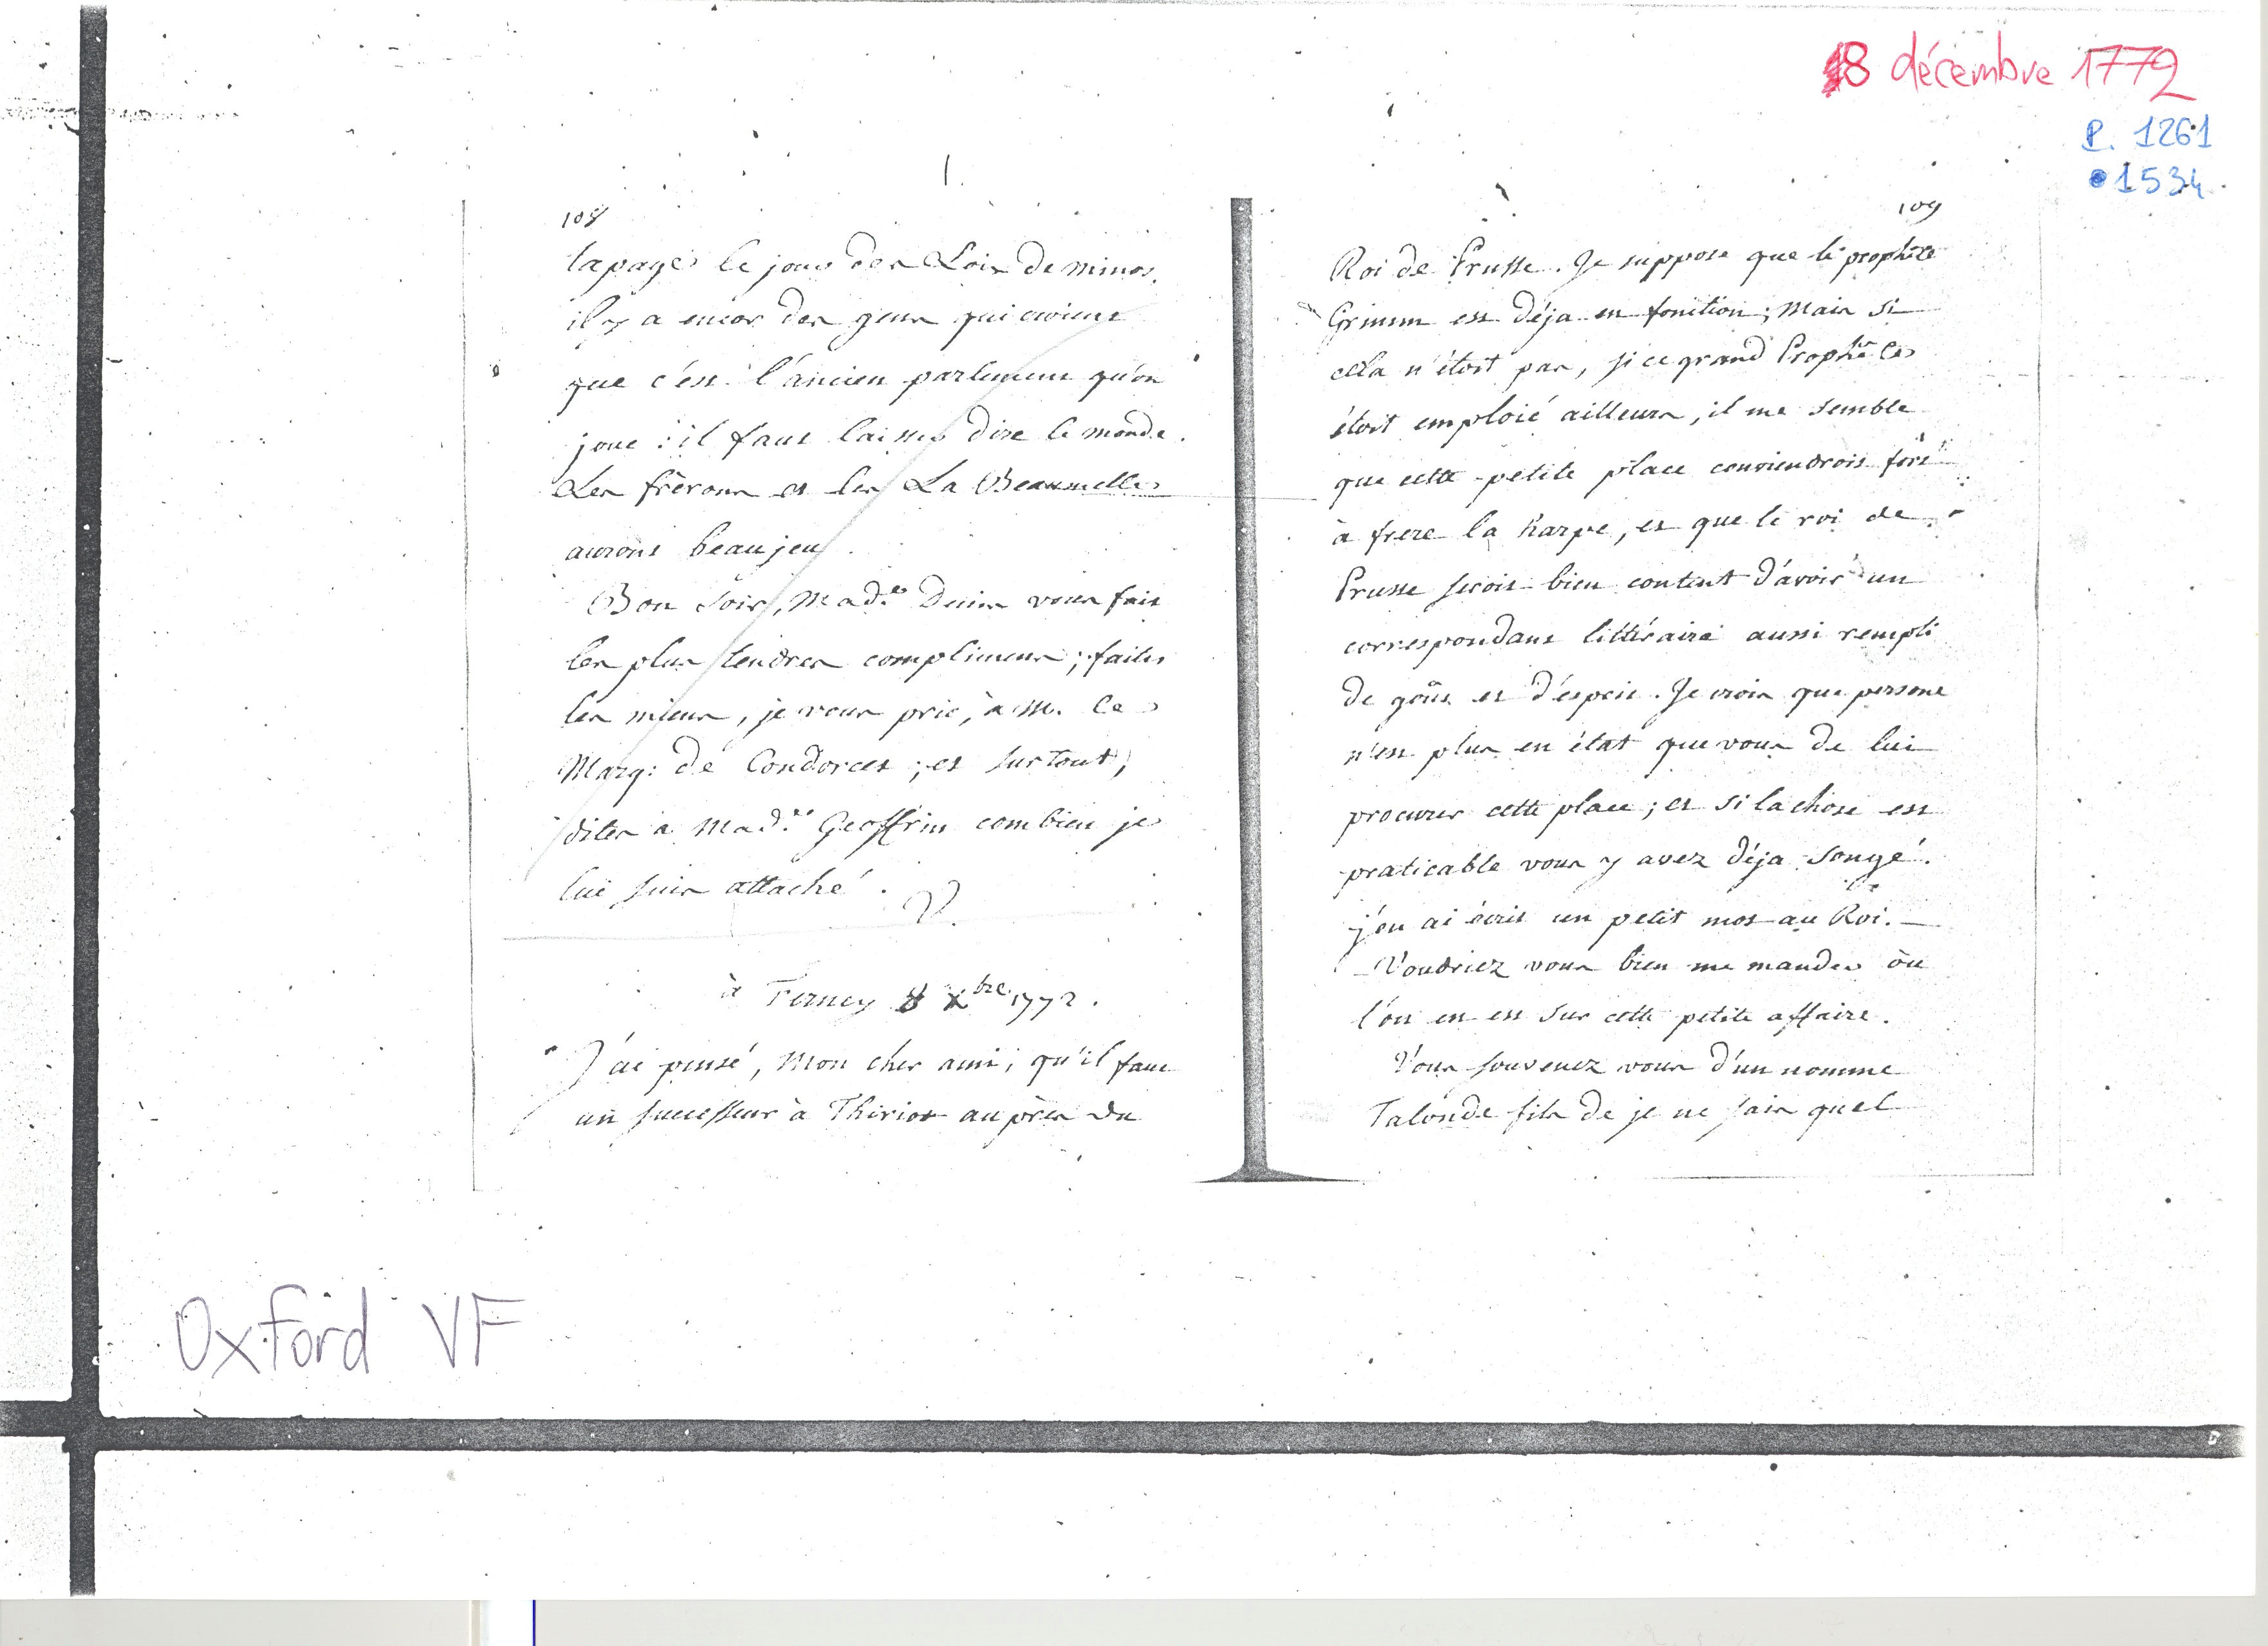 8 décembre 1772
P. 1261
1534
108
tapage le jour des Loix de minos.
il y a encor des gens qui croient
que c'est l'ancien parlement qu'on
joue : il faut laisser dire le monde.
Les frèrons et les La Beaumelles
auront beau jeu.
Bon soir, Mad.e Denis vous fait
les plus tendres complimens ; faites
les miens, je vous prie, à M. le
Marq: de Condorcet ; et surtout,
dites a Mad.e Geoffrin combien je
lui suis attaché.
V.
à Ferney 8 Xbre 1772.
J'ai pensé, Mon cher ami, qu'il faut
un successeur à Thiriot auprès du
109
Roi de Prusse. Je suppose que le prophète
Grimm est déja en fonction ; Mais si
cela n'étoit pas, si ce grand Prophête
étoit emploié ailleurs, il me semble
que cette petite place conviendroit fort
à frere la harpe, et que le roi de
Prusse seroit bien content d'avoir un
correspondant littéraire aussi rempli
de goût et d'esprit. Je crois que persone
n'est plus en état que vous de lui
procurer cette place ; et si la chose est
praticable vous y avez déja songé.
j'en ai écrit un petit mot au Roi.
Voudriez vous bien me mander où
l'on en est sur cette petite affaire.
Vous souvenez vous d'un nomme
Talonde fils de je ne sais quel
Oxford VF